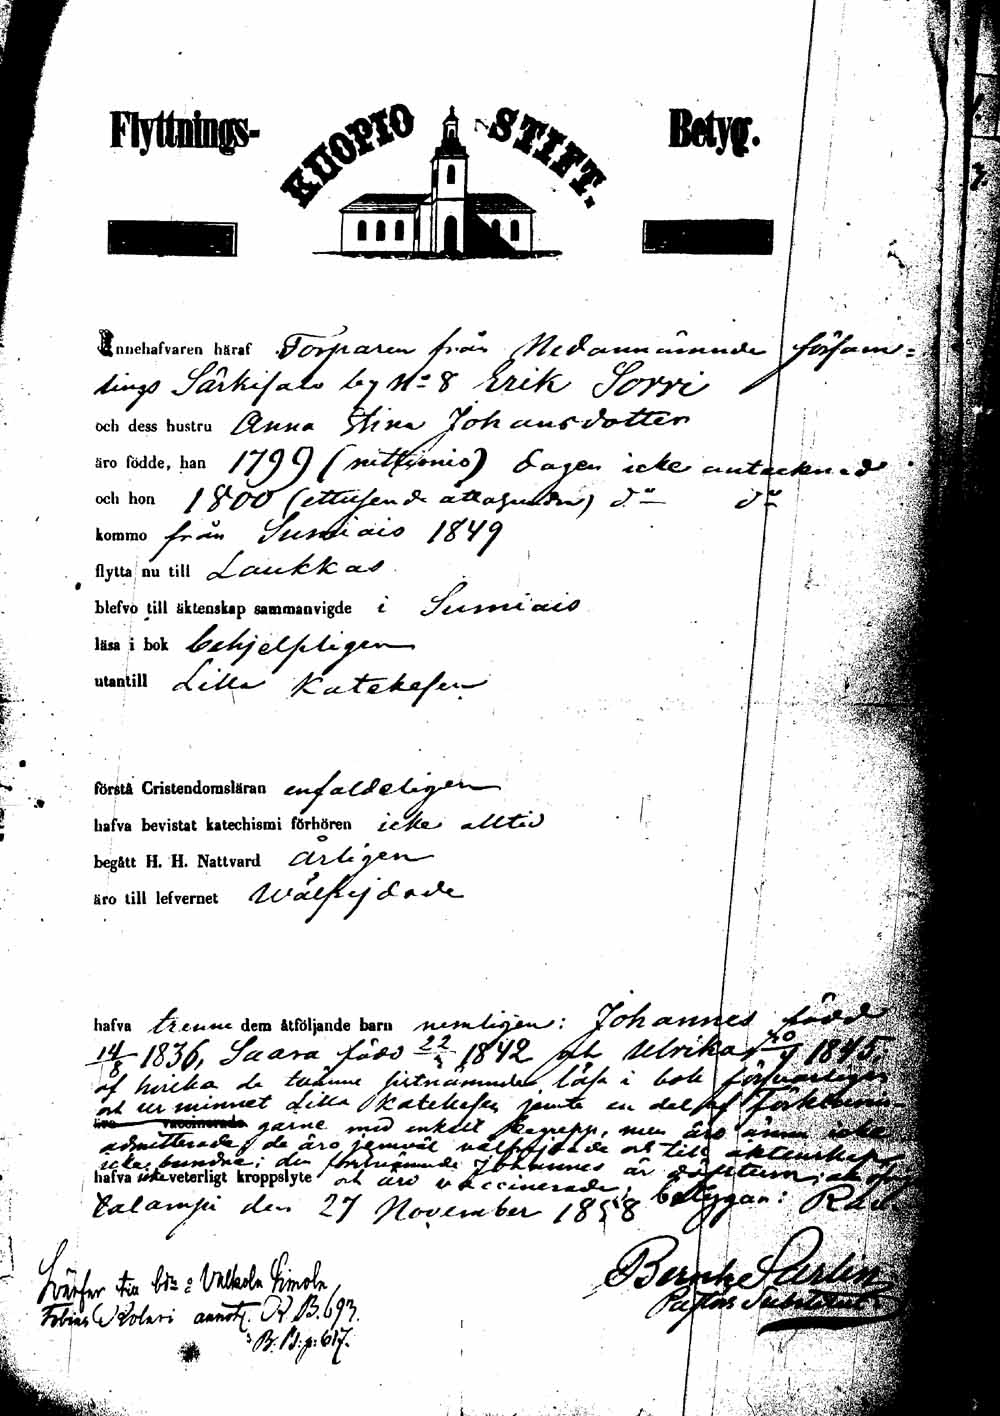 Flyttnings- KUOPIO STIFT. Betyg.
Innehafvaren häraf Torparen från Nedannämnde försam=
lings Särkisalo by No 8 Erik Sorri
och dess hustru Anna Stina Johansdotter
äro födde, han 1799 (nittionio) dagen icke antecknad
och hon 1800 (ettusende åttahundra) do do
kommo från Sumiais 1849
flytta nu till Laukkas
blefvo till äktenskap sammanvigde i Sumiais
läsa i bok behjelpligen
utantill Lilla Katekesen
förstå Cristendomsläran enfaldeligen
hafva bevistat katechismi förhören icke alltid
begått H. H. Nattvard Årligen
äro till lefvernet Wälfrejdade
hafva trenne dem åtföljande barn nemligen: Johannes född
14/8 1836, Saara född 1842 och Ulrika 1845.
af hvilka de tvänne förstnämnde läsa i bok försvarligen
och ur minnet Lilla Katekesen jemte en del af
garne med enkelt begrepp, men äro ännu icke
admitterade, de äro jemväl välfrejdade och till äktenskap
icke bundne; den förstnämnde Johannes är döfstum;
hafva icke veterligt kroppslyte och äro vaccinerade, betygar:
den 27 November 1858
Bernh. Sarlin
Pastors Substitut
Tobias Kolari annot. K. B. 693.
B. B. p: 617.